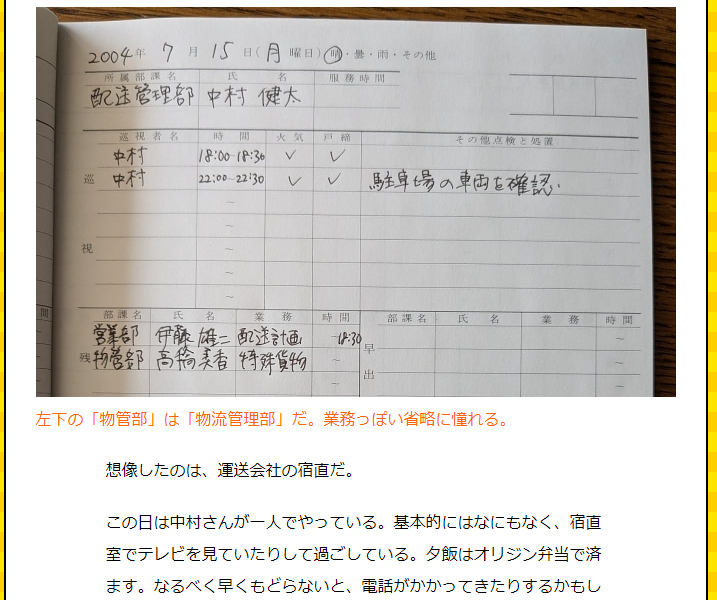 2004年 7月 15日(月曜日) 晴・曇・雨・その他
所属部課名 氏名 服務時間
配送管理部 中村 健太
巡視者名 時間 火気 戸締 その他点検と処置
中村 18:00~18:30 ✓ ✓
巡 中村 22:00~22:30 ✓ ✓ 駐車場の車両を確認.
~
~
視
~
~
間 部課名 氏名 業務 時間 部課名 氏名 業務 時間
営業部 伊藤 雄二 配送計画 ~18:30 ~
残 物管部 高橋 美香 特殊貨物 ~ 早 ~
~ 出 ~
左下の「物管部」は「物流管理部」だ。業務っぽい省略に憧れる。
想像したのは、運送会社の宿直だ。
この日は中村さんが一人でやっている。基本的にはなにもなく、宿直
室でテレビを見ていたりして過ごしている。夕飯はオリジン弁当で済
ます。なるべく早くもどらないと、電話がかかってきたりするかもし